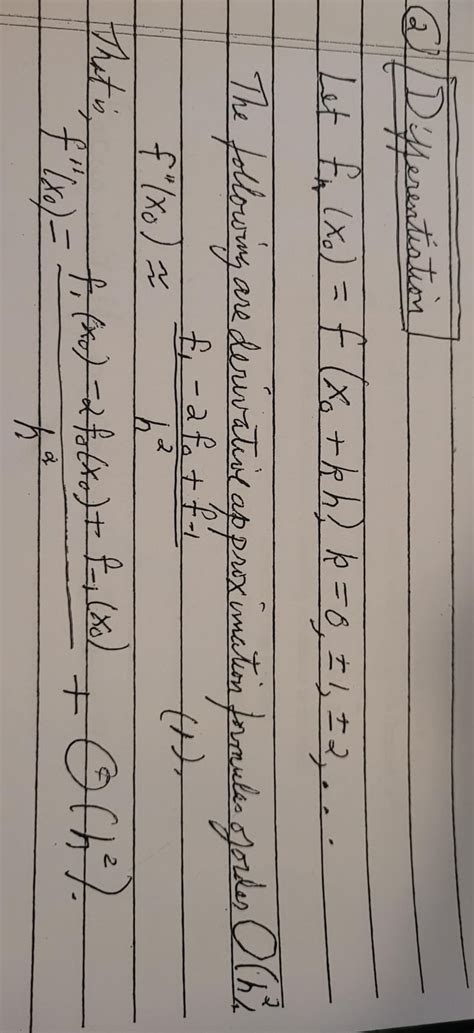 ② Differentiation
Let fₙ(x₀) = f(x₀ + kh) k = 0, ±1, ±2, ...
The following are derivative approximation formulas of order O(h²)
f''(x₀) ≈ (f₁ - 2f₀ + f₋₁) / h² (1).
That is,
f''(x₀) = (f₁(x₀) - 2f₀(x₀) + f₋₁(x₀)) / h² + O(h²).